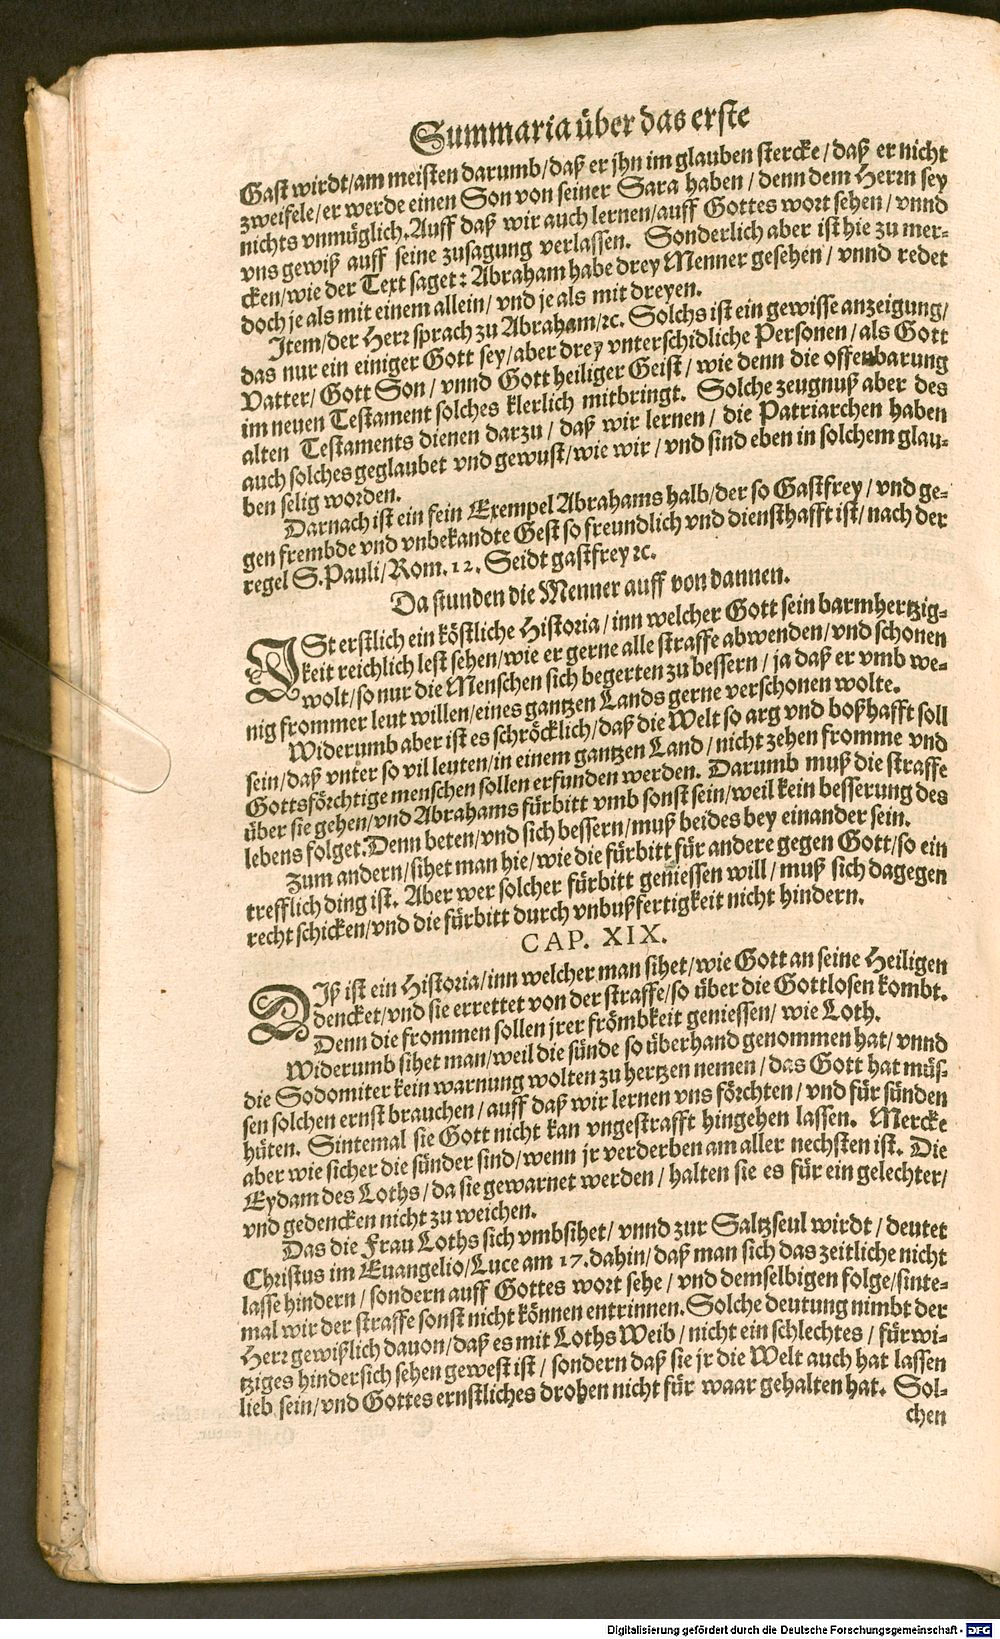 Summaria über das erste
Gast wirdt/am meisten darumb/daß er jhn im glauben stercke/daß er nicht
zweifele/er werde einen Son von seiner Sara haben/denn dem Herrn sey
nichts vnmüglich. Auff daß wir auch lernen/auff Gottes wort sehen/vnnd
vns gewiß auff seine zusagung verlassen. Sonderlich aber ist hie zu mer-
cken/wie der Text saget: Abraham habe drey Menner gesehen/vnnd redet
doch je als mit einem allein/vnd je als mit dreyen.
Item/der Herr sprach zu Abraham/ꝛc. Solchs ist ein gewisse anzeigung/
das nur ein einiger Gott sey/aber drey vnterschidliche Personen/als Gott
Vatter/Gott Son/vnnd Gott heiliger Geist/wie denn die offenbarung
im neuen Testament solches klerlich mitbringt. Solche zeugnuß aber des
alten Testaments dienen darzu/daß wir lernen/die Patriarchen haben
auch solches geglaubet vnd gewust/wie wir/vnd sind eben in solchem glau-
ben selig worden.
Darnach ist ein fein Exempel Abrahams halb/der so Gastfrey/vnd ge-
gen frembde vnd vnbekandte Gest so freundlich vnd diensthafft ist/nach der
regel S. Pauli/Rom. 12. Seidt gastfrey ꝛc.
Da stunden die Menner auff von dannen.
ISt erstlich ein köstliche Historia/inn welcher Gott sein barmhertzig-
keit reichlich lest sehen/wie er gerne alle straffe abwenden/vnd schonen
wolt/so nur die Menschen sich begerten zu bessern/ja daß er vmb we-
nig frommer leut willen/eines gantzen Lands gerne verschonen wolte.
Widerumb aber ist es schröcklich/daß die Welt so arg vnd boßhafft soll
sein/daß vnter so vil leuten/in einem gantzen Land/nicht zehen fromme vnd
Gottsförchtige menschen sollen erfunden werden. Darumb muß die straffe
über sie gehen/vnd Abrahams fürbitt vmb sonst sein/weil kein besserung des
lebens folget. Denn beten/vnd sich bessern/muß beides bey einander sein.
Zum andern/sihet man hie/wie die fürbitt für andere gegen Gott/so ein
trefflich ding ist. Aber wer solcher fürbitt geniessen will/muß sich dagegen
recht schicken/vnd die fürbitt durch vnbußfertigkeit nicht hindern.
CAP. XIX.
DIß ist ein Historia/inn welcher man sihet/wie Gott an seine Heiligen
dencket/vnd sie errettet von der straffe/so über die Gottlosen kombt.
Denn die frommen sollen jrer frömbkeit geniessen/wie Loth.
Widerumb sihet man/weil die sünde so überhand genommen hat/vnnd
die Sodomiter kein warnung wolten zu hertzen nemen/das Gott hat müs-
sen solchen ernst brauchen/auff daß wir lernen vns förchten/vnd für sünden
hüten. Sintemal sie Gott nicht kan vngestrafft hingehen lassen. Mercke
aber wie sicher die sünder sind/wenn jr verderben am aller nechsten ist. Die
Eydam des Loths/da sie gewarnet werden/halten sie es für ein gelechter/
vnd gedencken nicht zu weichen.
Das die Frau Loths sich vmbsihet/vnnd zur Saltzseul wirdt/deutet
Christus im Euangelio/Luce am 17. dahin/daß man sich das zeitliche nicht
lasse hindern/sondern auff Gottes wort sehe/vnd demselbigen folge/sinte-
mal wir der straffe sonst nicht können entrinnen. Solche deutung nimbt der
Herr gewißlich dauon/daß es mit Loths Weib/nicht ein schlechtes/fürwi-
tziges hindersich sehen gewest ist/sondern daß sie jr die Welt auch hat lassen
lieb sein/vnd Gottes ernstliches drohen nicht für waar gehalten hat. Sol-
chen
Digitalisierung gefördert durch die Deutsche Forschungsgemeinschaft - DFG